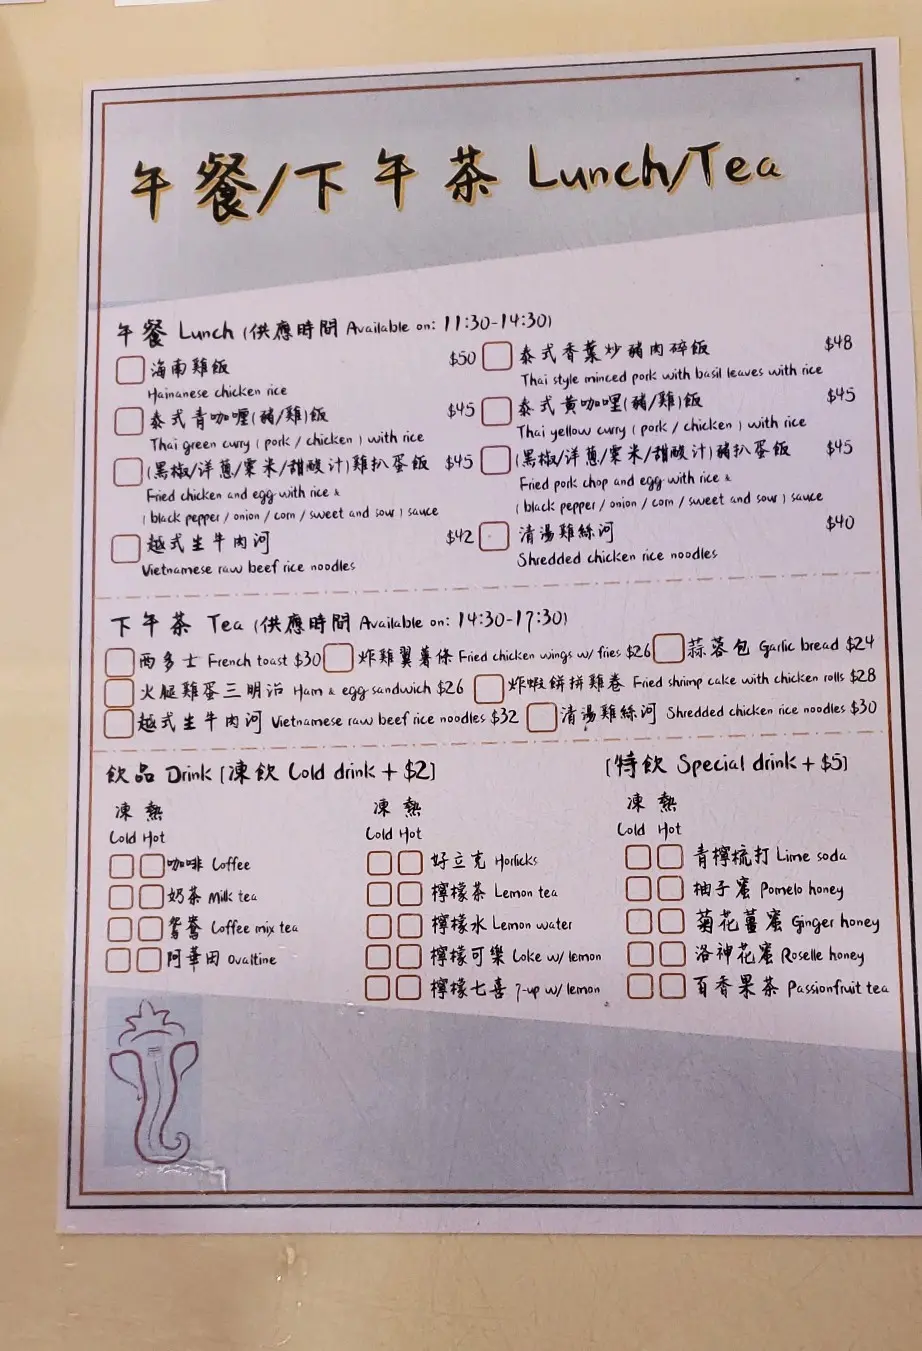 午餐/下午茶 Lunch/Tea
午餐 Lunch (供應時間 Available on: 11:30-14:30)
海南雞飯 $50
Hainanese chicken rice
泰式香葉炒豬肉碎飯 $48
Thai style minced pork with basil leaves with rice
泰式青咖喱(豬/雞)飯 $45
Thai green curry ( pork / chicken ) with rice
泰式黃咖哩(豬/雞)飯 $45
Thai yellow curry ( pork / chicken ) with rice
(黑椒/洋蔥/粟米/甜酸汁)雞扒蛋飯 $45
Fried chicken and egg with rice &
( black pepper / onion / corn / sweet and sour ) sauce
(黑椒/洋蔥/粟米/甜酸汁)豬扒蛋飯 $45
Fried pork chop and egg with rice &
( black pepper / onion / corn / sweet and sour ) sauce
越式生牛肉河 $42
Vietnamese raw beef rice noodles
清湯雞絲河 $40
Shredded chicken rice noodles
下午茶 Tea (供應時間 Available on: 14:30-17:30)
西多士 French toast $30 炸雞翼薯條 Fried chicken wings w/ fries $26 蒜蓉包 Garlic bread $24
火腿雞蛋三明治 Ham & egg sandwich $26 炸蝦餅拼雞卷 Fried shrimp cake with chicken rolls $28
越式生牛肉河 Vietnamese raw beef rice noodles $32 清湯雞絲河 Shredded chicken rice noodles $30
飲品 Drink [凍飲 Cold drink + $2]
凍 熱
Cold Hot
咖啡 Coffee
奶茶 Milk tea
鴛鴦 Coffee mix tea
阿華田 Ovaltine
凍 熱
Cold Hot
好立克 Horlicks
檸檬茶 Lemon tea
檸檬水 Lemon water
檸檬可樂 Coke w/ lemon
檸檬七喜 7-up w/ lemon
[特飲 Special drink + $5]
凍 熱
Cold Hot
青檸梳打 Lime soda
柚子蜜 Pomelo honey
菊花薑蜜 Ginger honey
洛神花蜜 Roselle honey
百香果茶 Passionfruit tea